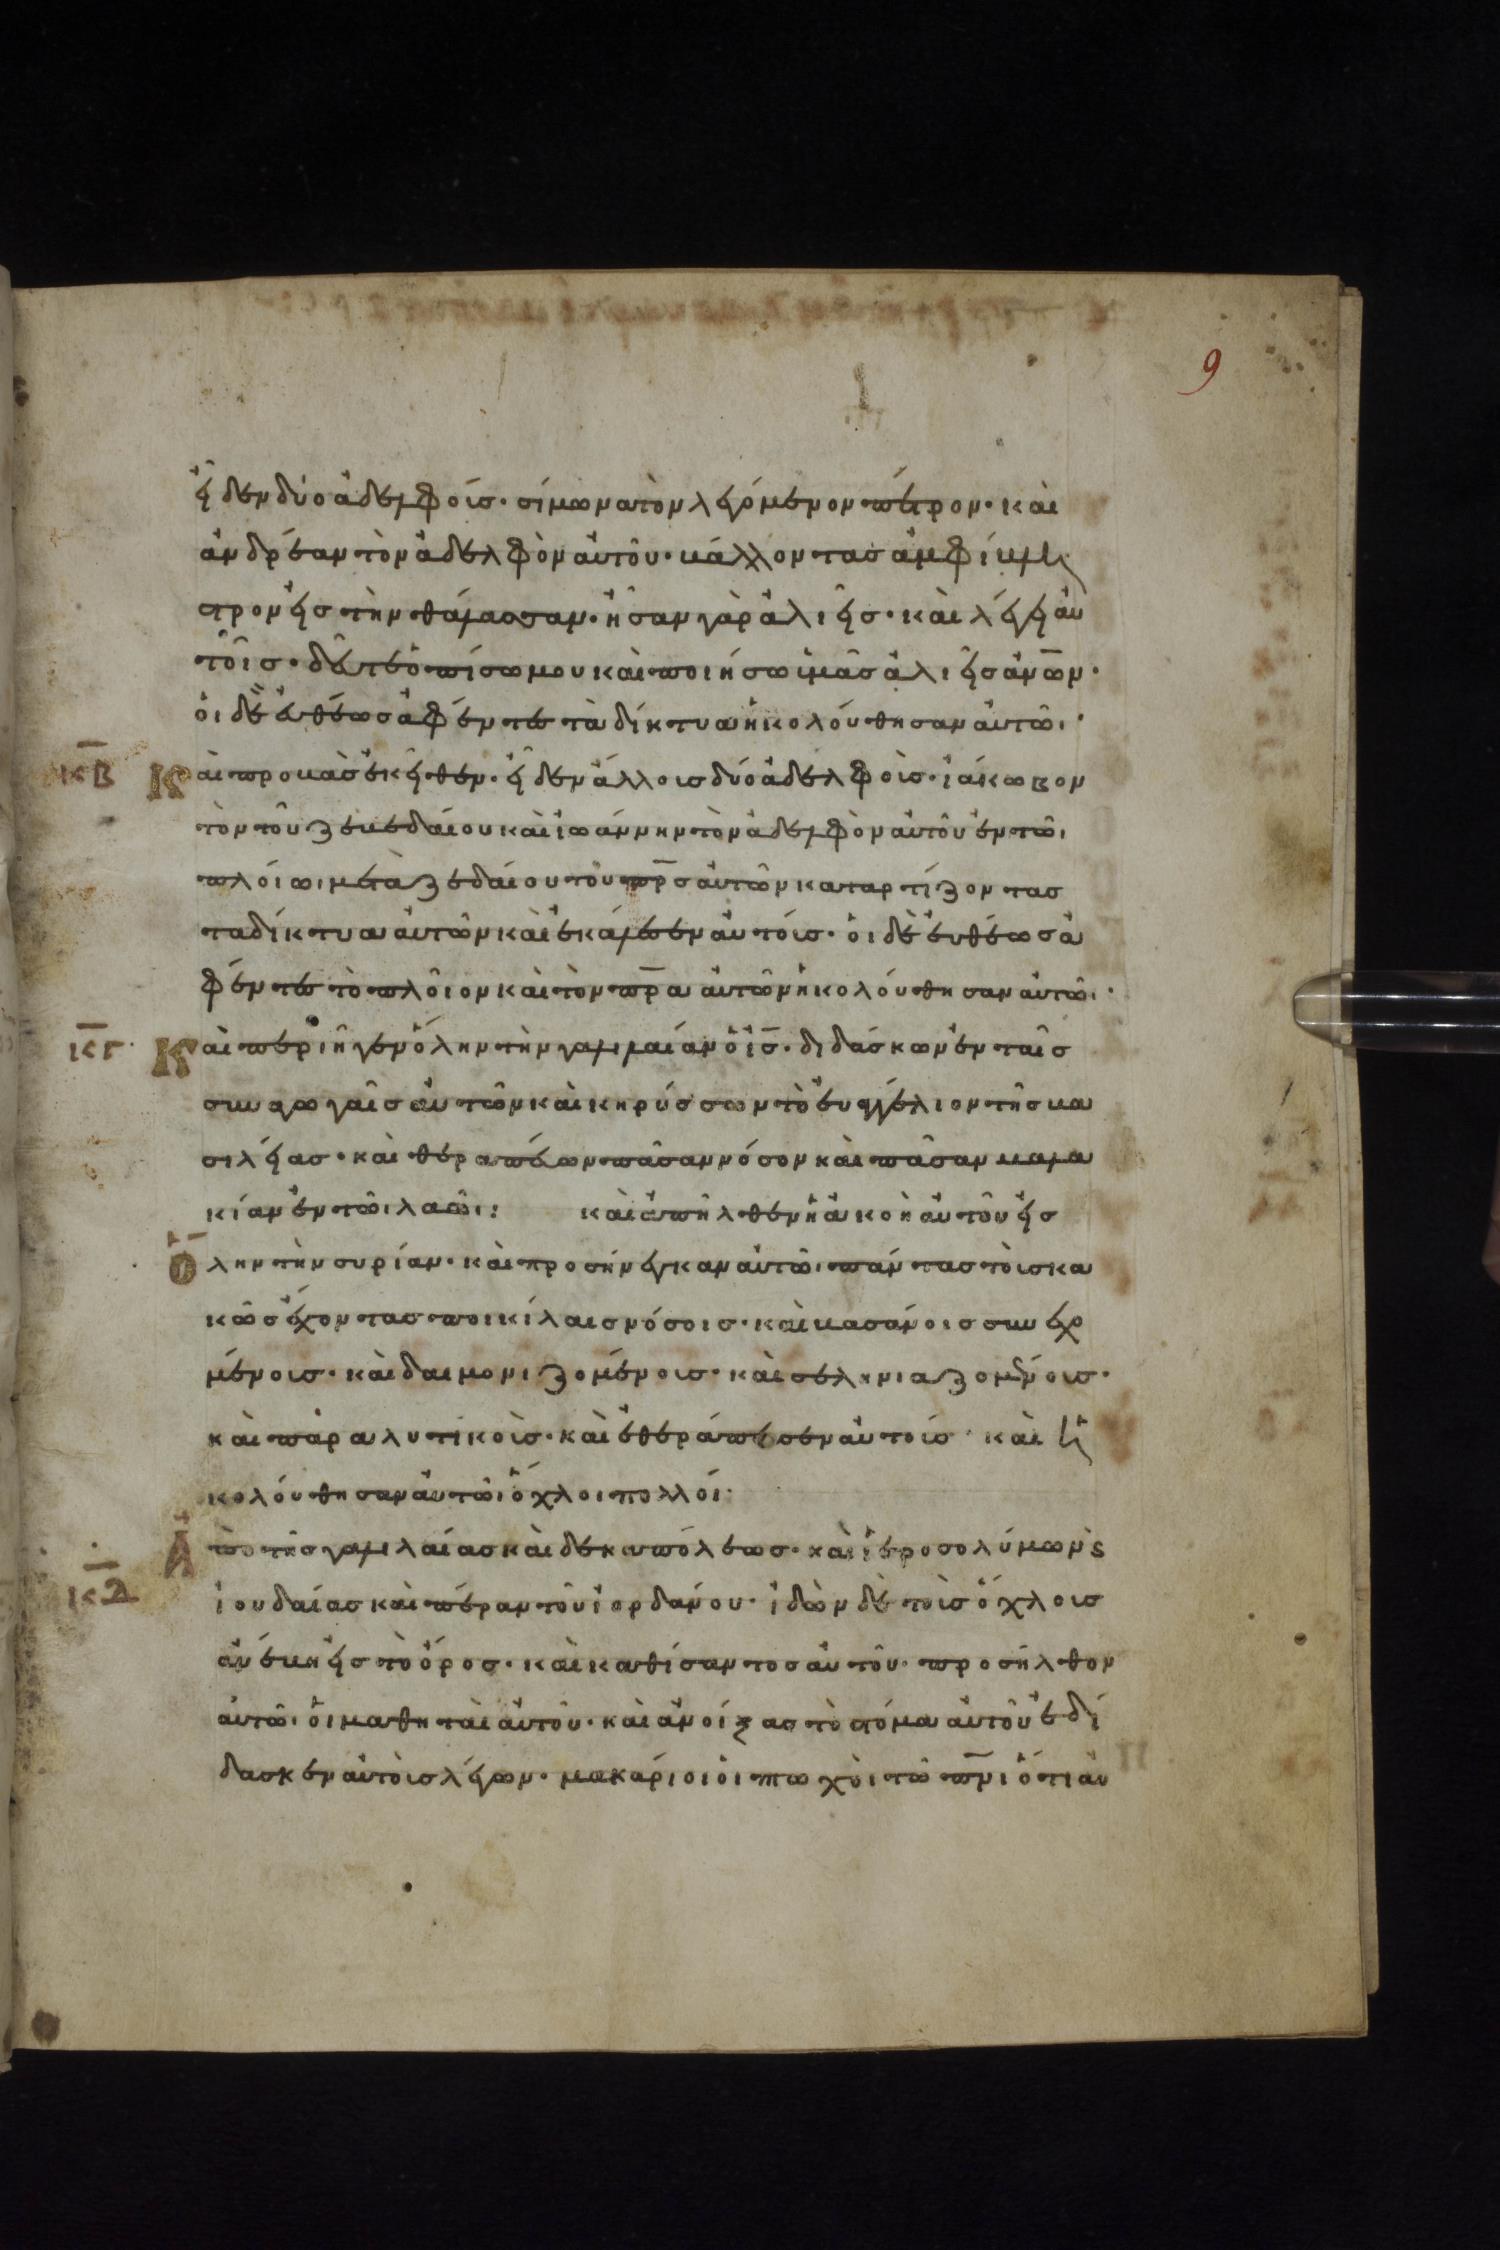 9
εἶδεν δύο ἀδελφούς· σίμωνα τὸν λεγόμενον πέτρον· καὶ
ἀνδρέαν τὸν ἀδελφὸν αὐτοῦ· βάλλοντας ἀμφίβλη
στρον εἰς τὴν θάλασσαν· ἦσαν γὰρ ἁλιεῖς· καὶ λέγει αὐ
τοῖς· δεῦτε ὀπίσω μου καὶ ποιήσω ὑμᾶς ἁλιεῖς ἀν̅ω̅ν·
οἱ δὲ εὐθέως ἀφέντες τὰ δίκτυα ἠκολούθησαν αὐτῶι·
κ̅β̅ Καὶ προβὰς ἐκεῖθεν· εἶδεν ἄλλους δύο ἀδελφούς· ἰάκωβον
τὸν τοῦ ζεβεδαίου καὶ ἰωάννην τὸν ἀδελφὸν αὐτοῦ ἐν τῶι
πλοίωι μετὰ ζεδαίου τοῦ π̅ρ̅ς αὐτῶν καταρτίζοντας
τα δίκτυα αὐτῶν καὶ ἐκάλεσεν αὐτούς· οἱ δὲ εὐθέως ἀ
φέντες τὸ πλοῖον καὶ τὸν π̅ρ̅α αὐτῶν ἠκολούθησαν αὐτῶι·
κ̅γ̅ Καὶ περιῆγεν ὅλην τὴν γαλιλαίαν ὁ ι̅ς̅· διδάσκων ἐν ταῖς
συναγωγαῖς αὐτῶν καὶ κηρύσσων τὸ εὐαγγέλιον τῆς βα
σιλείας· καὶ θεραπεύων πᾶσαν νόσον καὶ πᾶσαν μαλα
κίαν ἐν τῶι λαῶι: καὶ ἀπῆλθεν ἡ ἀκοὴ αὐτοῦ εἰς
Ὅλην τὴν συρίαν· καὶ προσήνεγκαν αὐτῶι πάντας τοὺς κα
κῶς ἔχοντας ποικίλαις νόσοις· καὶ βασάνοις συνεχο
μένους· καὶ δαιμονιζομένους· καὶ σεληνιαζομένους·
καὶ παραλυτικούς· καὶ ἐθεράπευσεν αὐτούς· καὶ ἠ
κολούθησαν αὐτῶι ὄχλοι πολλοί·
κ̅δ̅ Ἀπὸ τῆς γαλιλαίας καὶ δεκαπόλεως· καὶ ἱεροσολύμων ϗ
ἰουδαίας καὶ πέραν τοῦ ἰορδάνου· ἰδὼν δὲ τοὺς ὄχλους
ἀνέβη εἰς τὸ ὄρος· καὶ καθίσαντος αὐτοῦ· προσῆλθον
αὐτῶι οἱ μαθηταὶ αὐτοῦ· καὶ ἀνοίξας τὸ στόμα αὐτοῦ ἐδί
δασκεν αὐτοὺς λέγων· μακάριοι οἱ πτωχοὶ τῶ π̅ν̅ι ὅτι αὐ